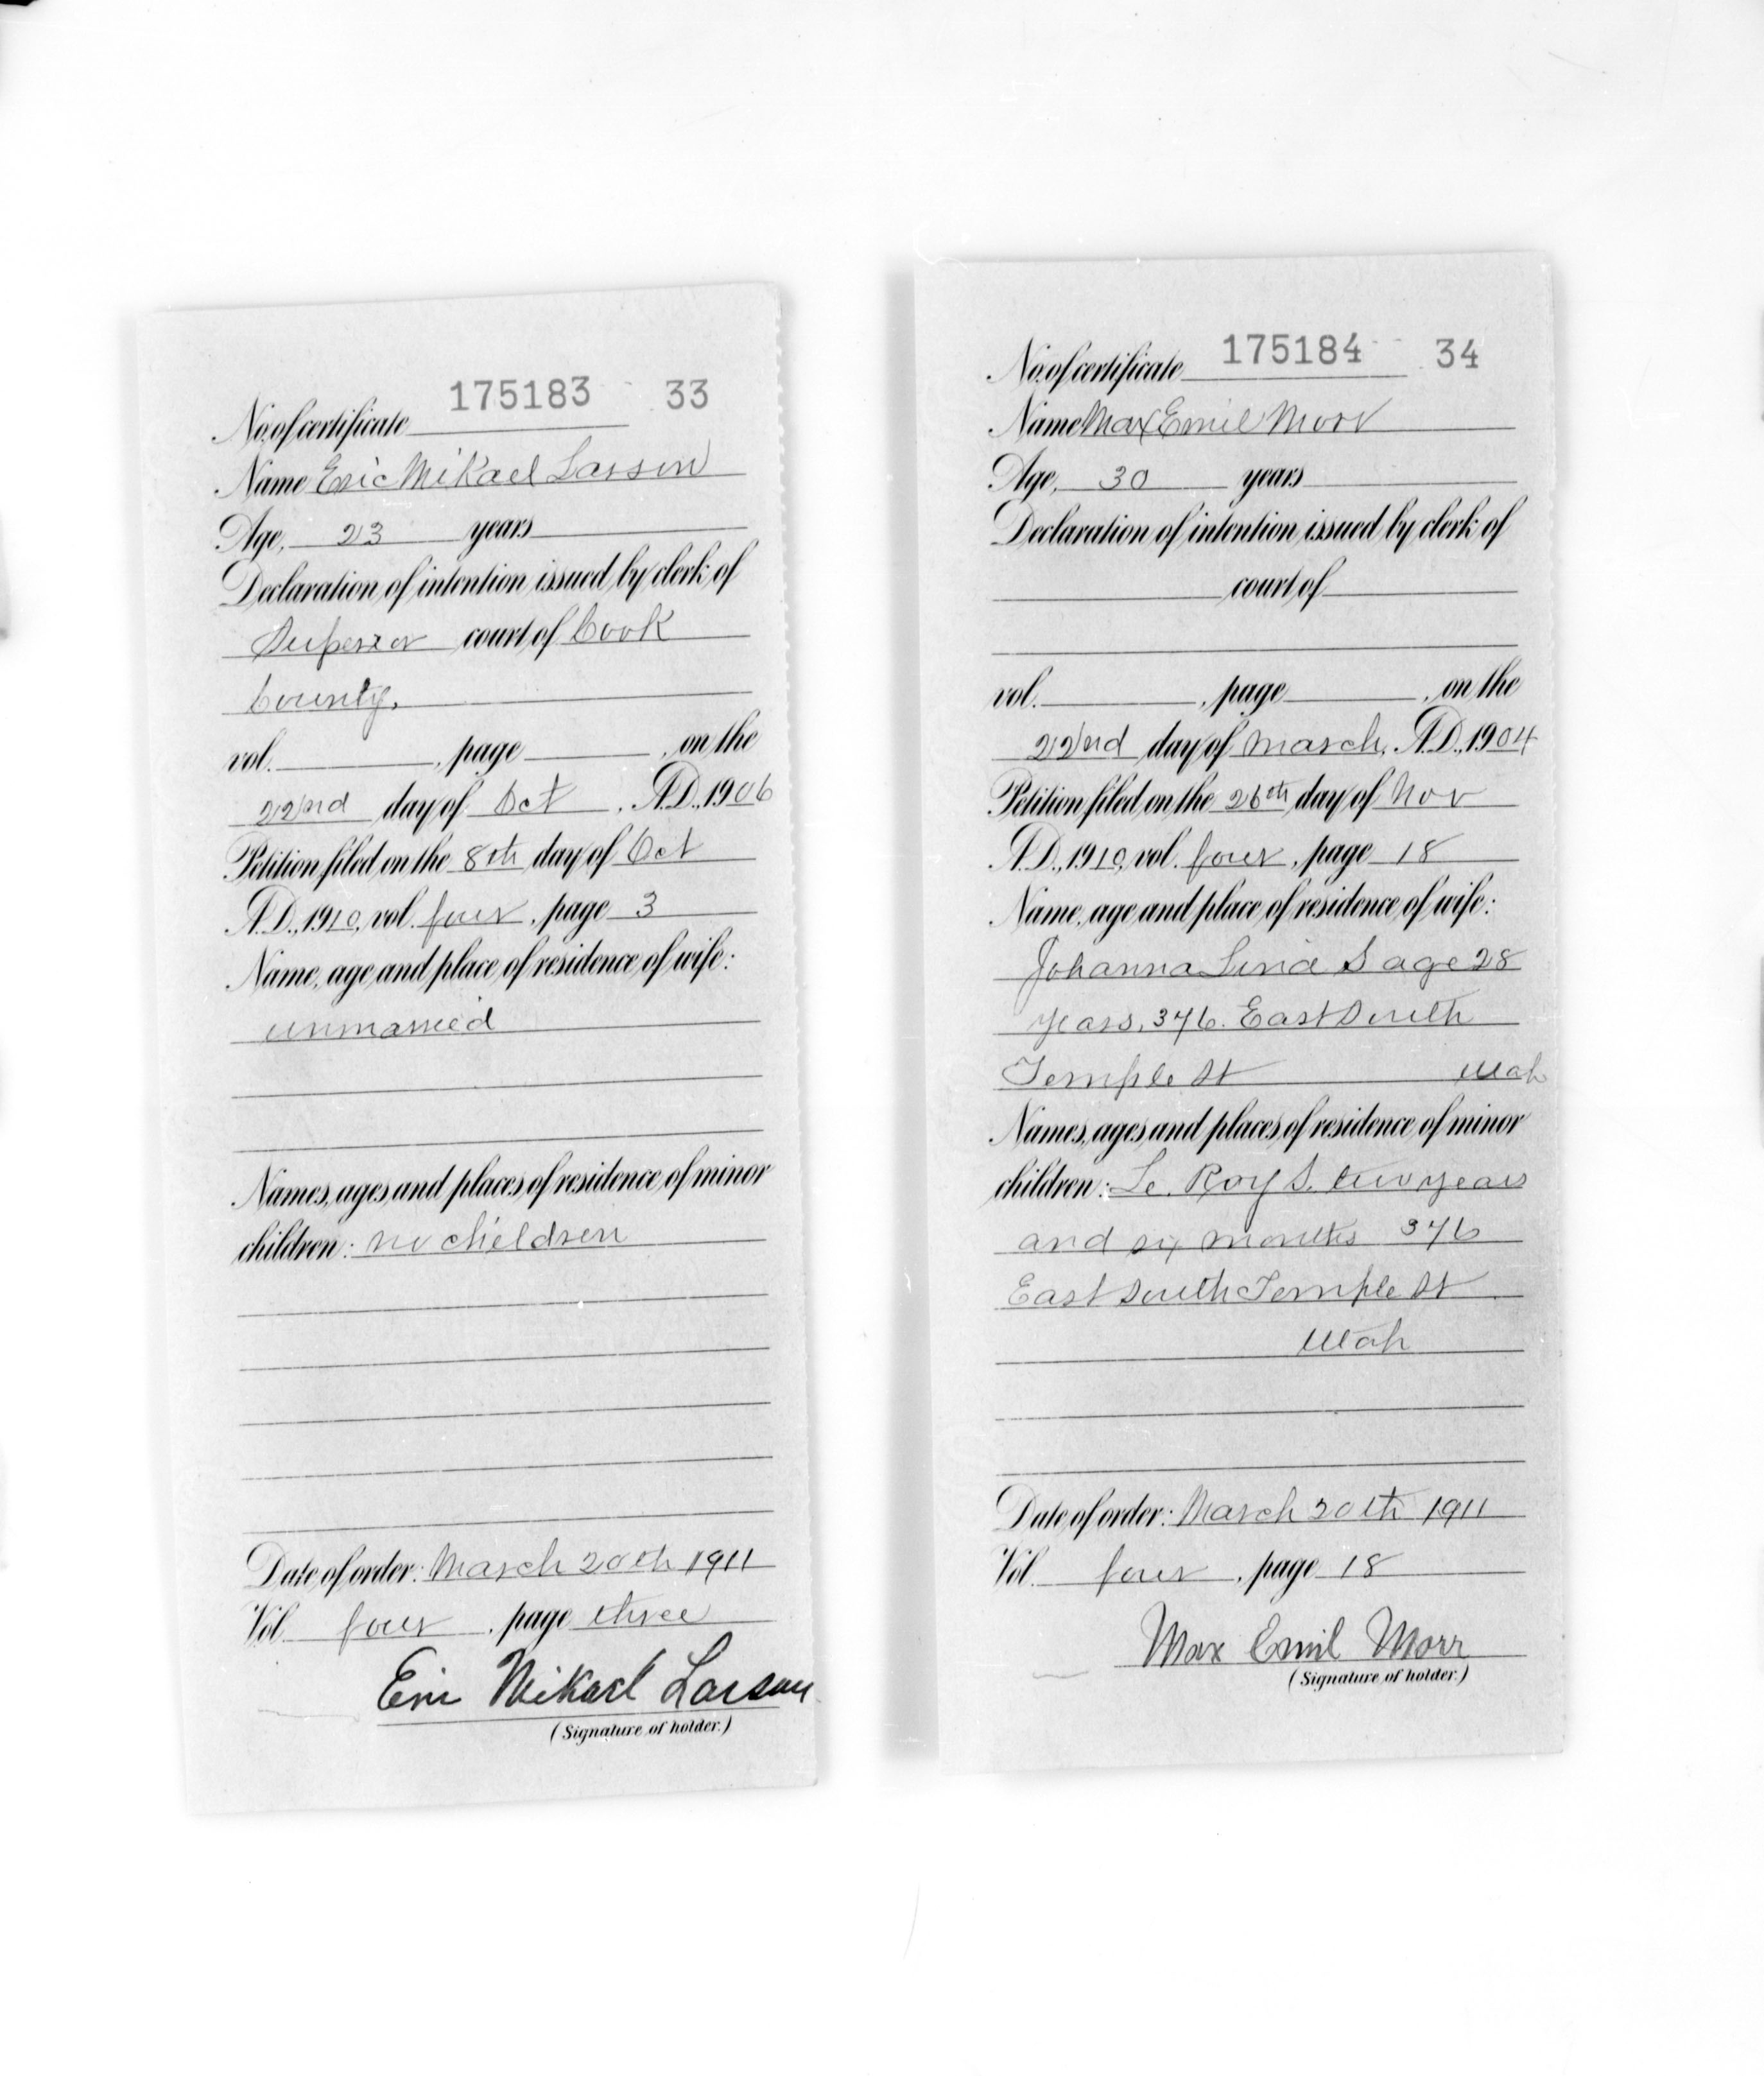 175183 33
No. of certificate
Name Eric Mikael Larson
Age, 23 years
Declaration of intention issued by clerk of
Superior court of Cook
County,
vol. , page , on the
22nd day of Oct , A.D., 1906
Petition filed on the 8th day of Oct
A.D., 1910, vol. four, page 3
Name, age and place of residence of wife:
unmarried
Names, ages and places of residence of minor
children: no children
Date of order: March 20th 1911
Vol. four , page three
Eric Mikael Larson
(Signature of holder.)
No. of certificate 175184 34
Name Max Emil Morr
Age, 30 years
Declaration of intention issued by clerk of
court of
vol. , page , on the
22nd day of March, A.D., 1904
Petition filed on the 26th day of Nov
A.D., 1910, vol. four, page 18
Name, age and place of residence of wife:
Johanna Lina S age 28
years, 376. East South
Temple St Utah
Names, ages and places of residence of minor
children: Le. Roy S. two years
and six months 376
East South Temple St
Utah
Date of order: March 20th 1911
Vol. four , page 18
Max Emil Morr
(Signature of holder.)